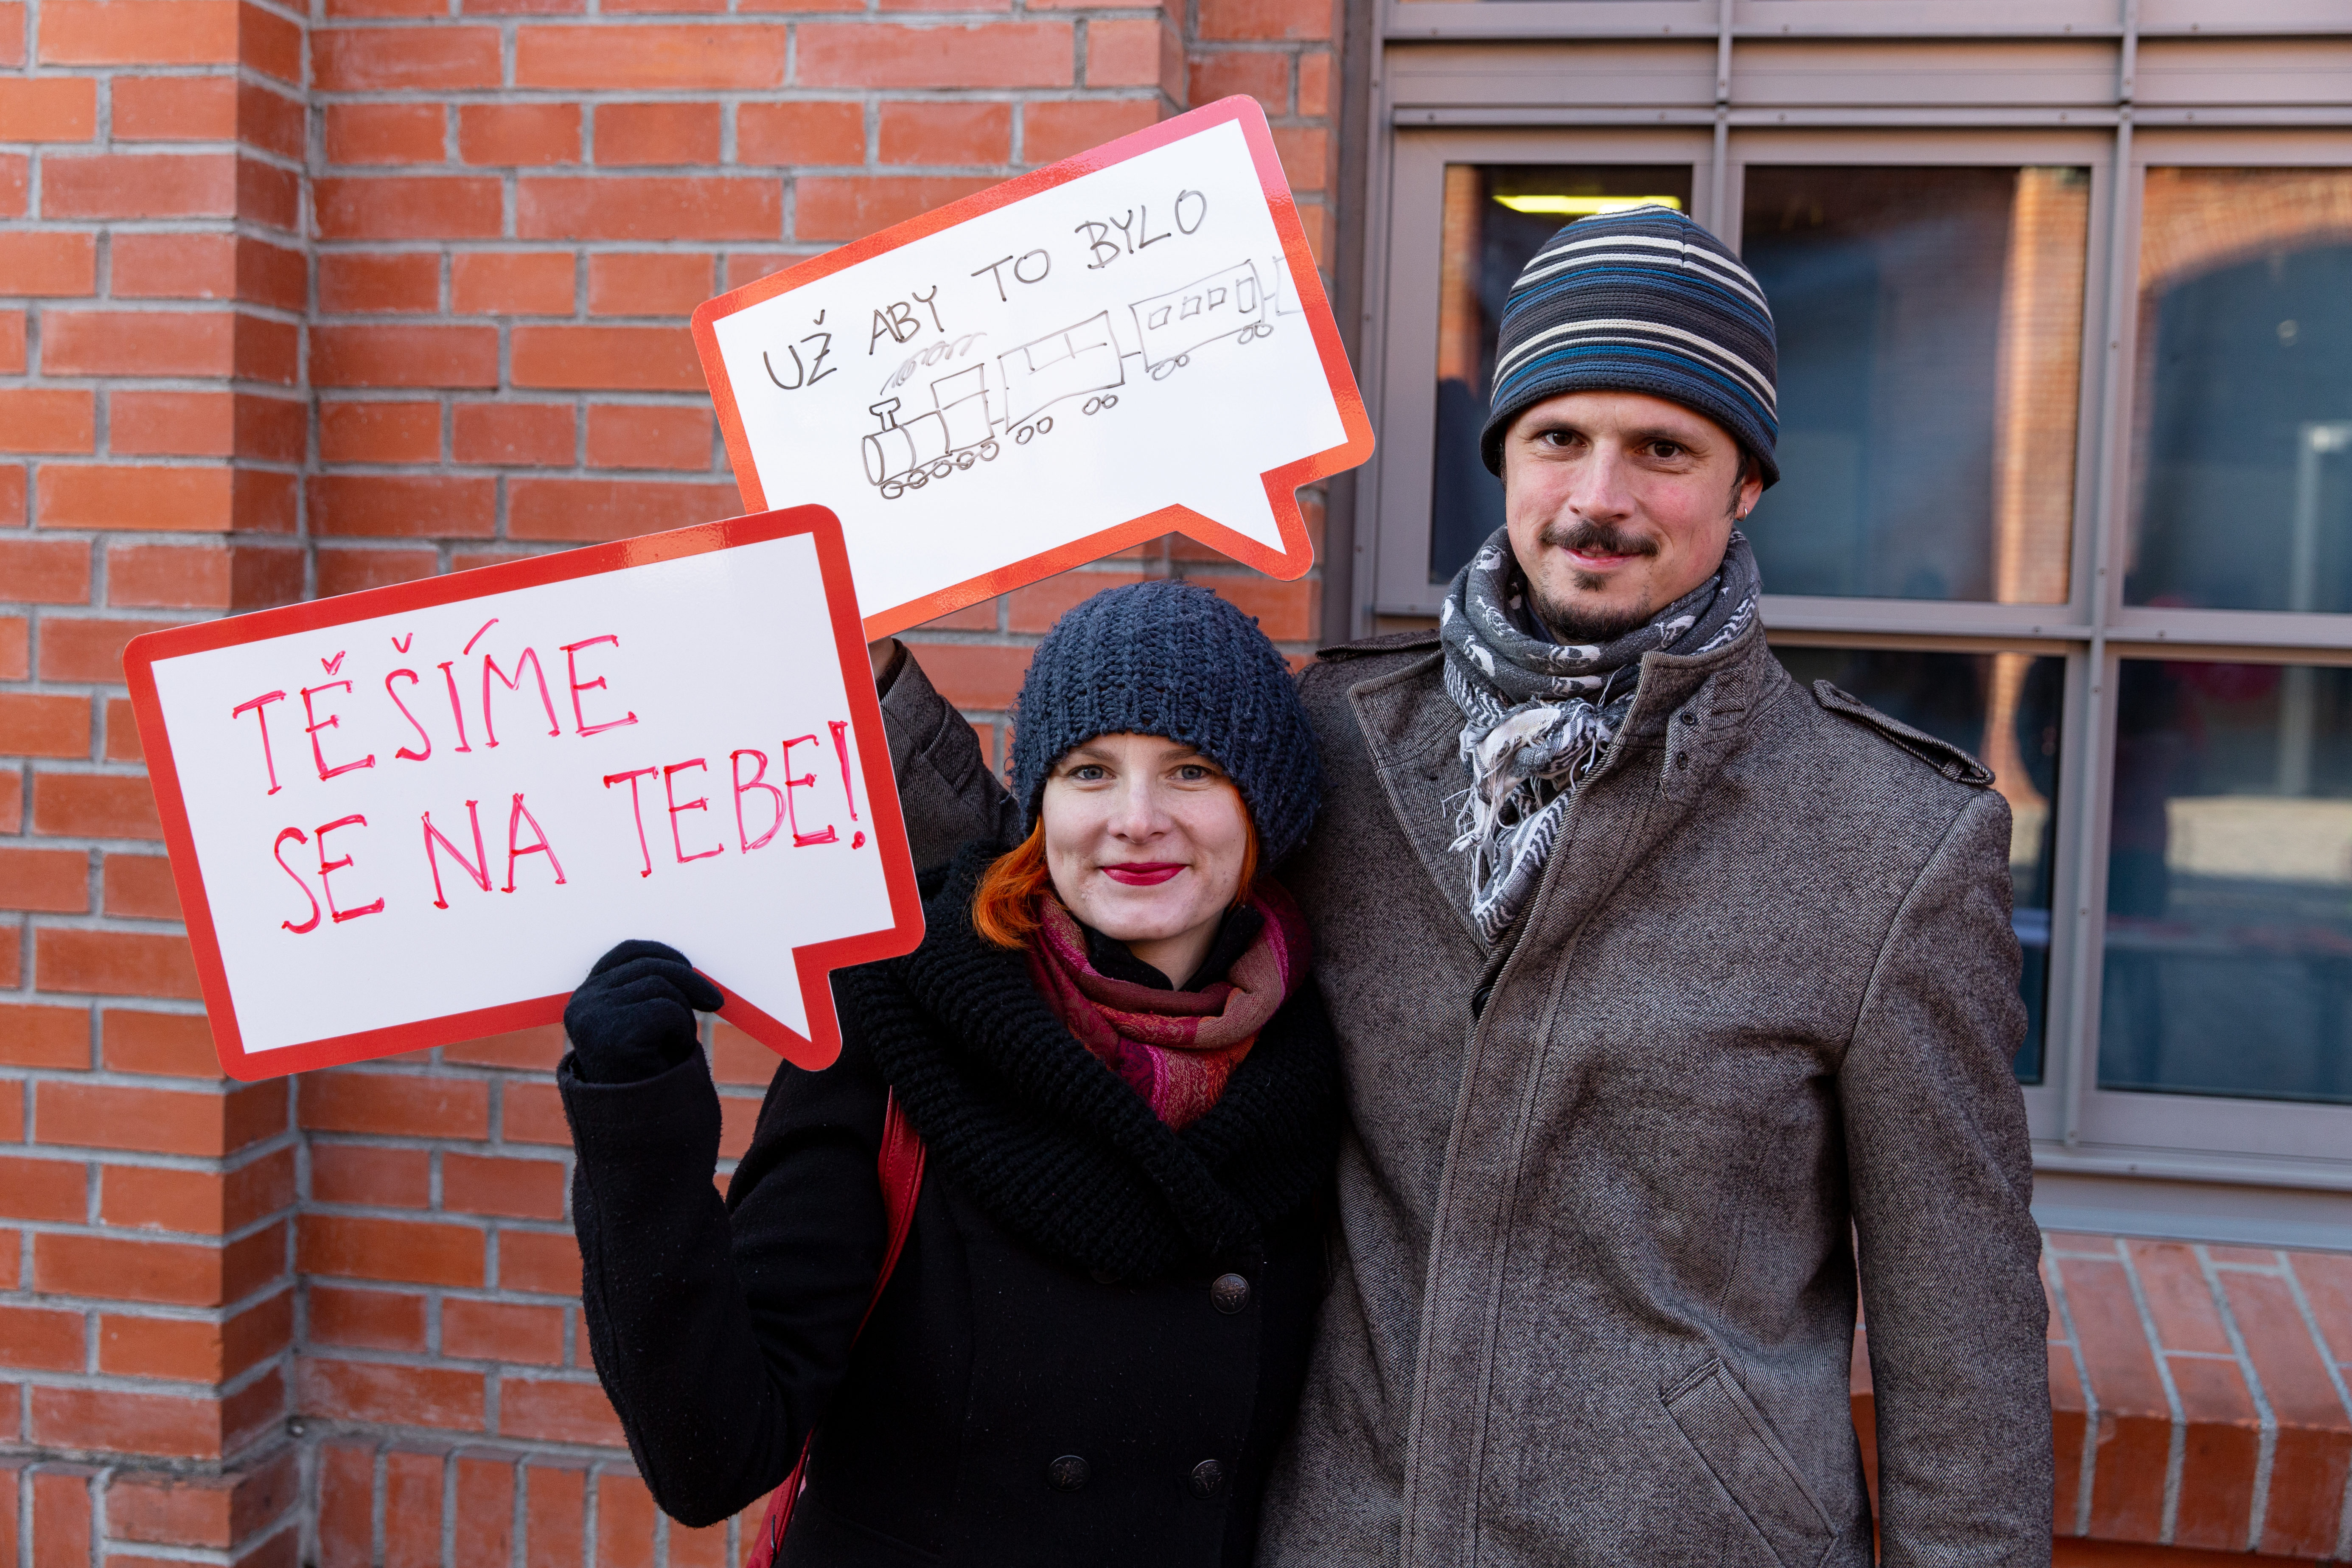 UŽ ABY TO BYLO
TĚŠÍME
SE NA TEBE!